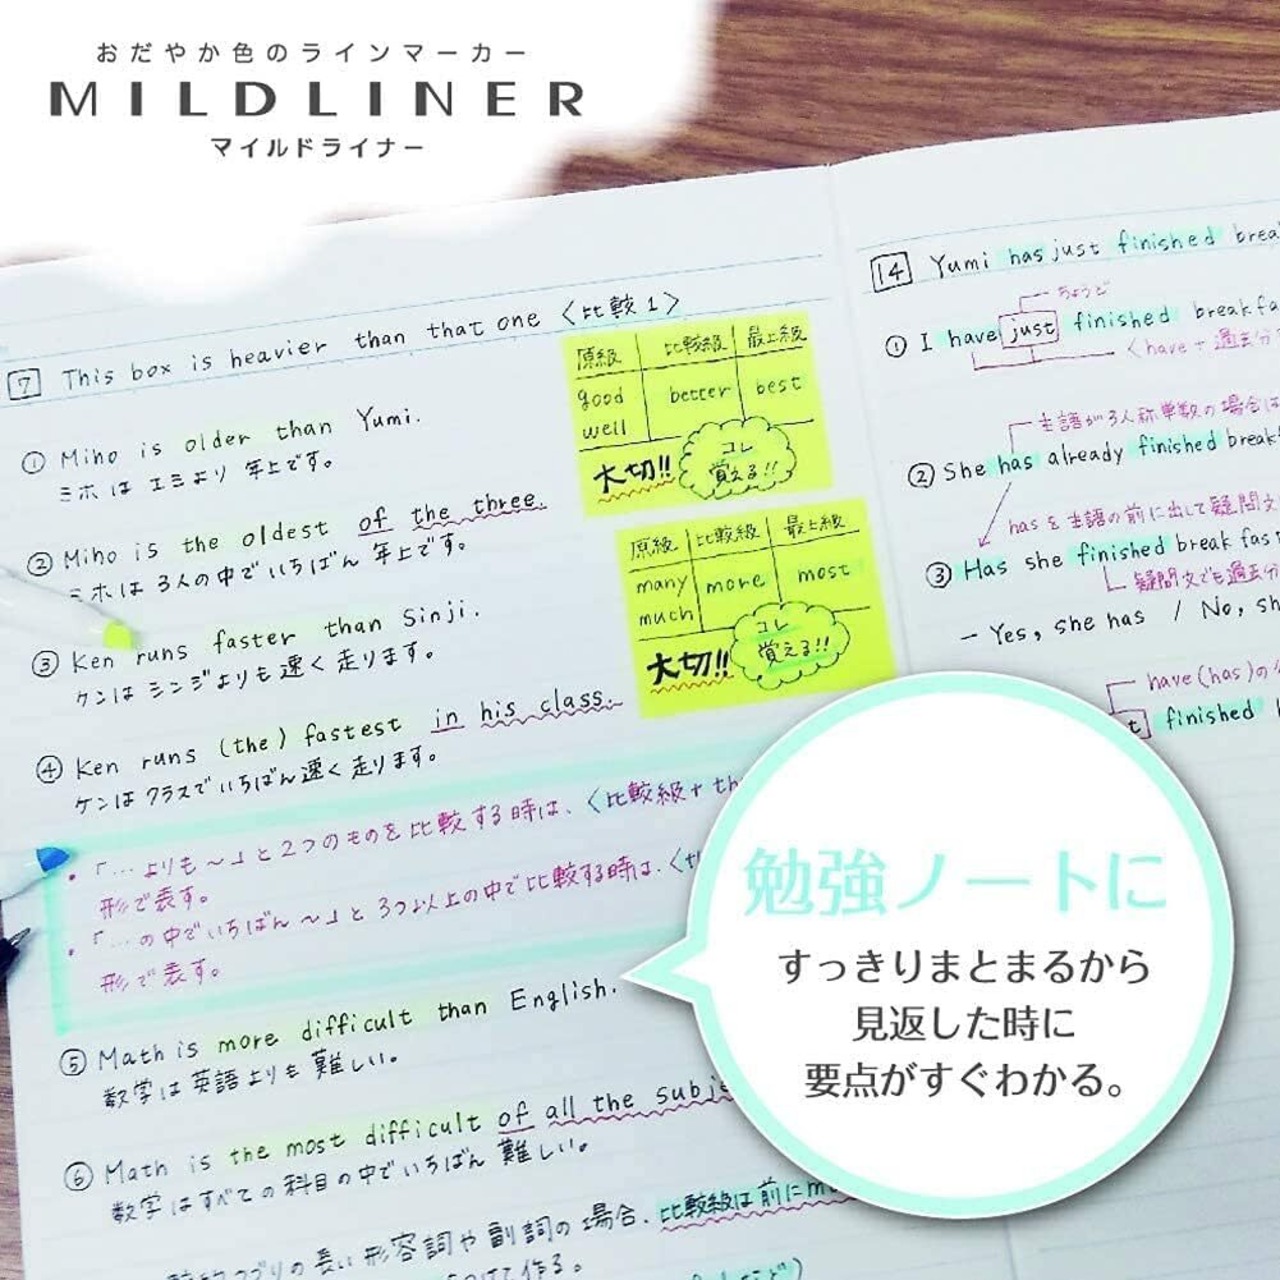 おだやか色のラインマーカー
MILDLINER
マイルドライナー
7 This box is heavier than that one 〈比較1〉
① Miho is older than Yumi.
ミホは エミより 年上です。
② Miho is the oldest of the three.
ミホは 3人の中でいちばん 年上です。
③ Ken runs faster than Sinji.
ケンは シンジよりも 速く 走ります。
④ Ken runs (the) fastest in his class.
ケンは クラスで いちばん 速く 走ります。
・「…よりも〜」と2つのものを比較する時は、〈比較級+th
形で表す。
・「…の中でいちばん〜」と 3つ以上の中で比較する時は、〈
形で表す。
⑤ Math is more difficult than English.
数学は 英語よりも 難しい。
⑥ Math is the most difficult of all the subj
数学はすべての 科目の中でいちばん 難しい。
の長い形容詞や副詞の場合、比較級は前に
作る。
原級 比較級 最上級
good better best
well
大切!! コレ
覚える!!
原級 比較級 最上級
many more most
much
大切!! コレ
覚える!!
14 Yumi has just finished brea
ちょうど
① I have just finished breakfa
〈have+過去分
主語が3人称単数の場合は
② She has already finished break
hasを主語の前に出して疑問文
③ Has she finished breakfas
疑問文でも過去分
- Yes, she has / No, sh
have(has)の
t finished
勉強ノートに
すっきりまとまるから
見返した時に
要点がすぐわかる。